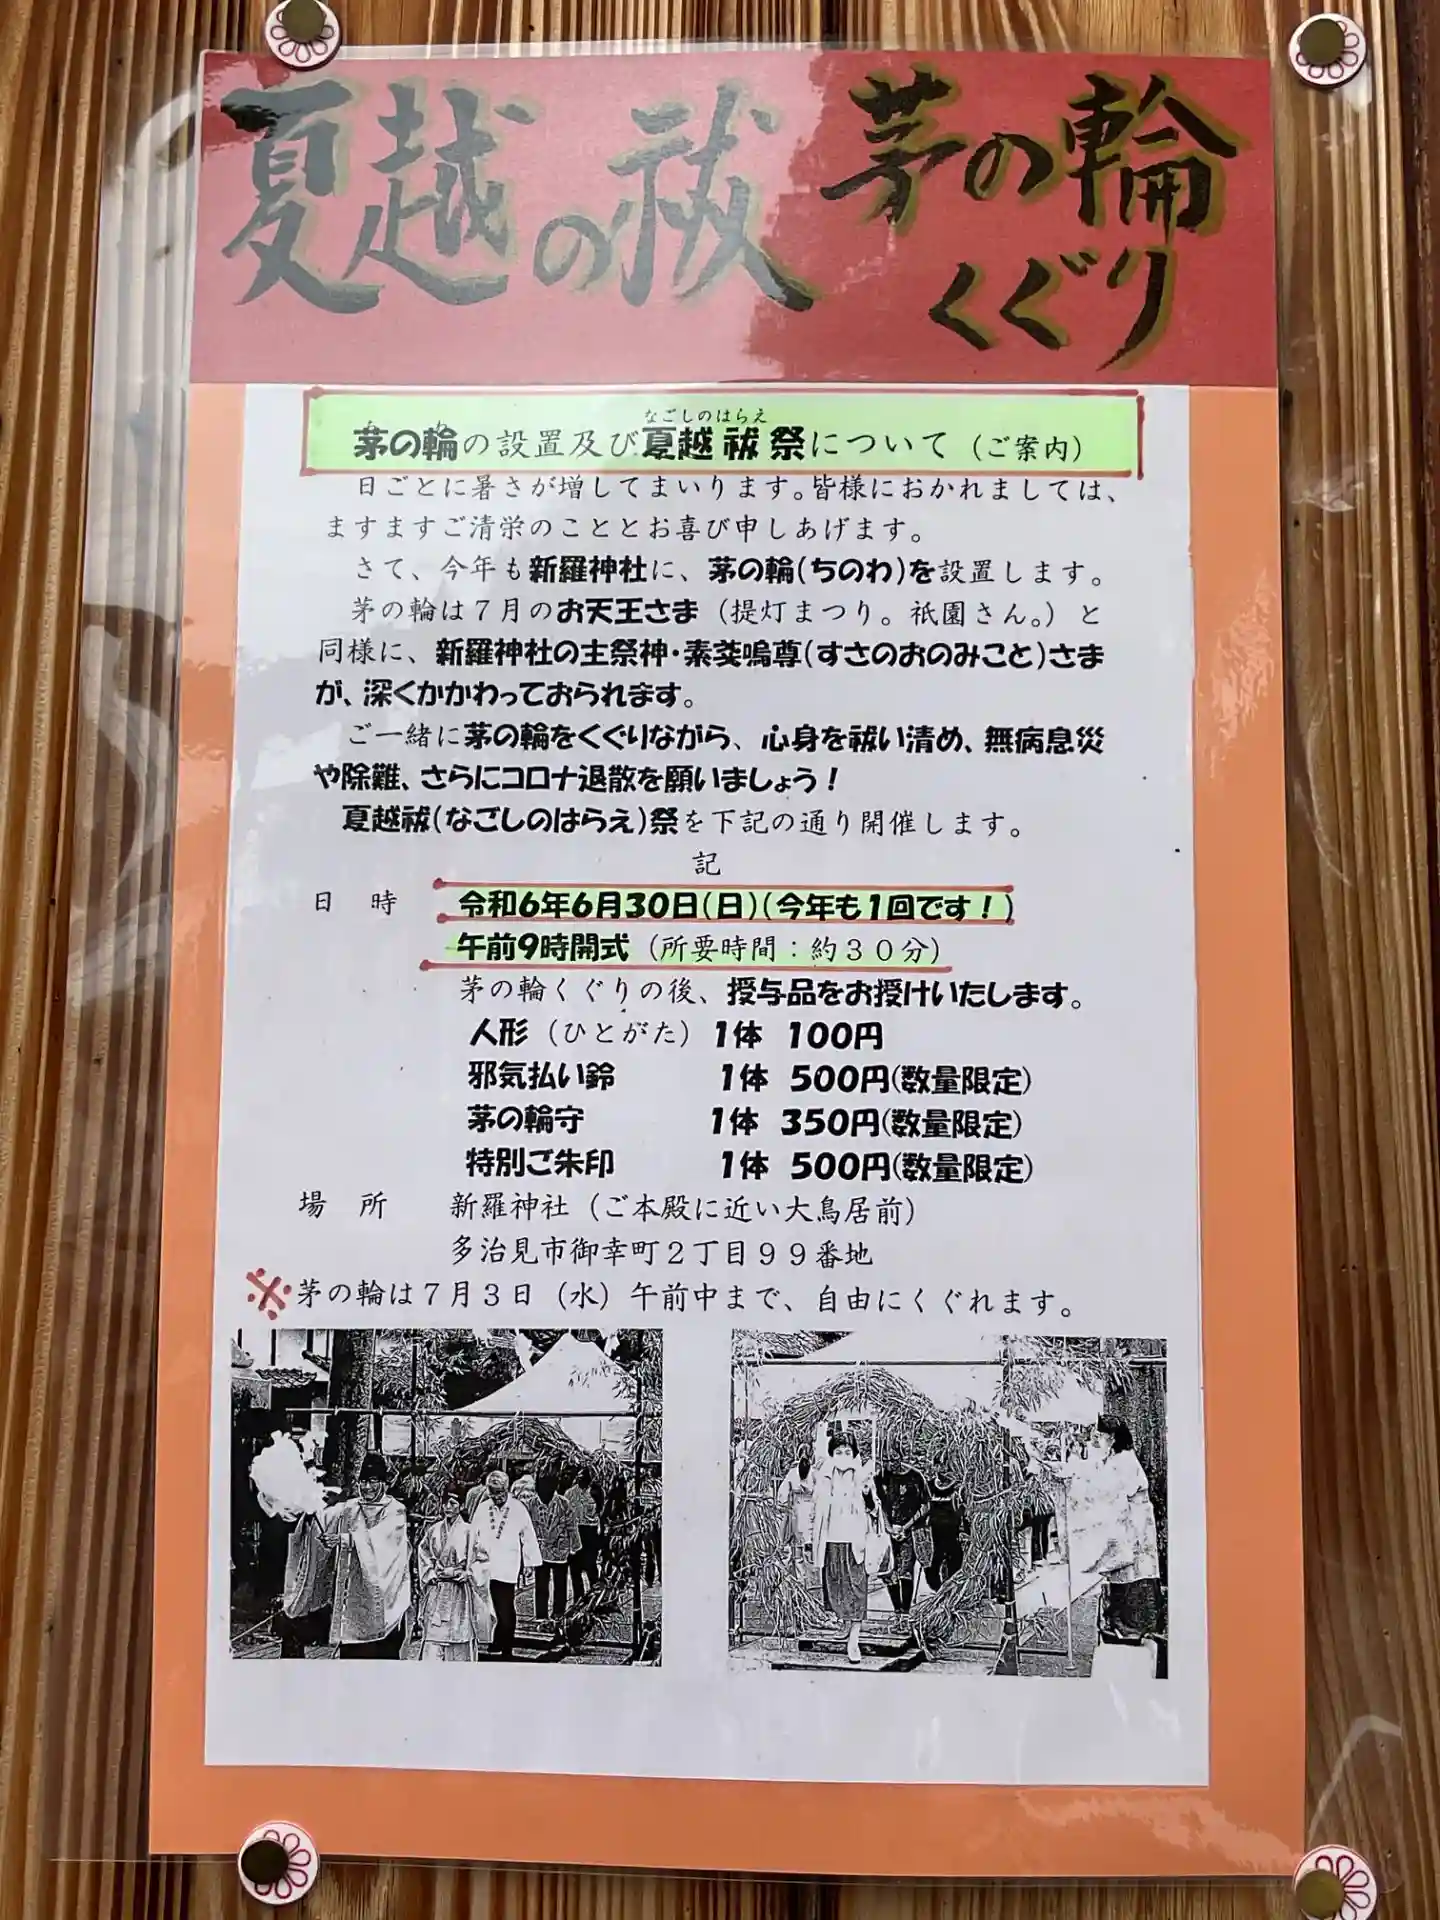 夏越の祓 茅の輪
くぐり
なごしのはらえ
茅の輪の設置及び夏越祓祭について(ご案内)
日ごとに暑さが増してまいります。皆様におかれましては、
ますますご清栄のこととお喜び申しあげます。
さて、今年も新羅神社に、茅の輪(ちのわ)を設置します。
茅の輪は7月のお天王さま(提灯まつり。祇園さん。)と
同様に、新羅神社の主祭神・素戔嗚尊(すさのおのみこと)さま
が、深くかかわっておられます。
ご一緒に茅の輪をくぐりながら、心身を祓い清め、無病息災
や除難、さらにコロナ退散を願いましょう!
夏越祓(なごしのはらえ)祭を下記の通り開催します。
記
日 時 令和6年6月30日(日)(今年も1回です!)
午前9時開式(所要時間:約30分)
茅の輪くぐりの後、授与品をお授けいたします。
人形(ひとがた)1体 100円
邪気払い鈴 1体 500円(数量限定)
茅の輪守 1体 350円(数量限定)
特別ご朱印 1体 500円(数量限定)
場 所 新羅神社(ご本殿に近い大鳥居前)
多治見市御幸町2丁目99番地
※茅の輪は7月3日(水)午前中まで、自由にくぐれます。